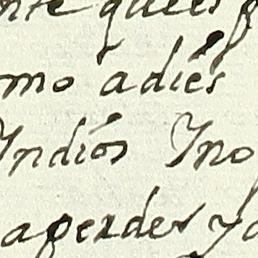 nte que es
mo adiés
Indios Ino
aperdes yo